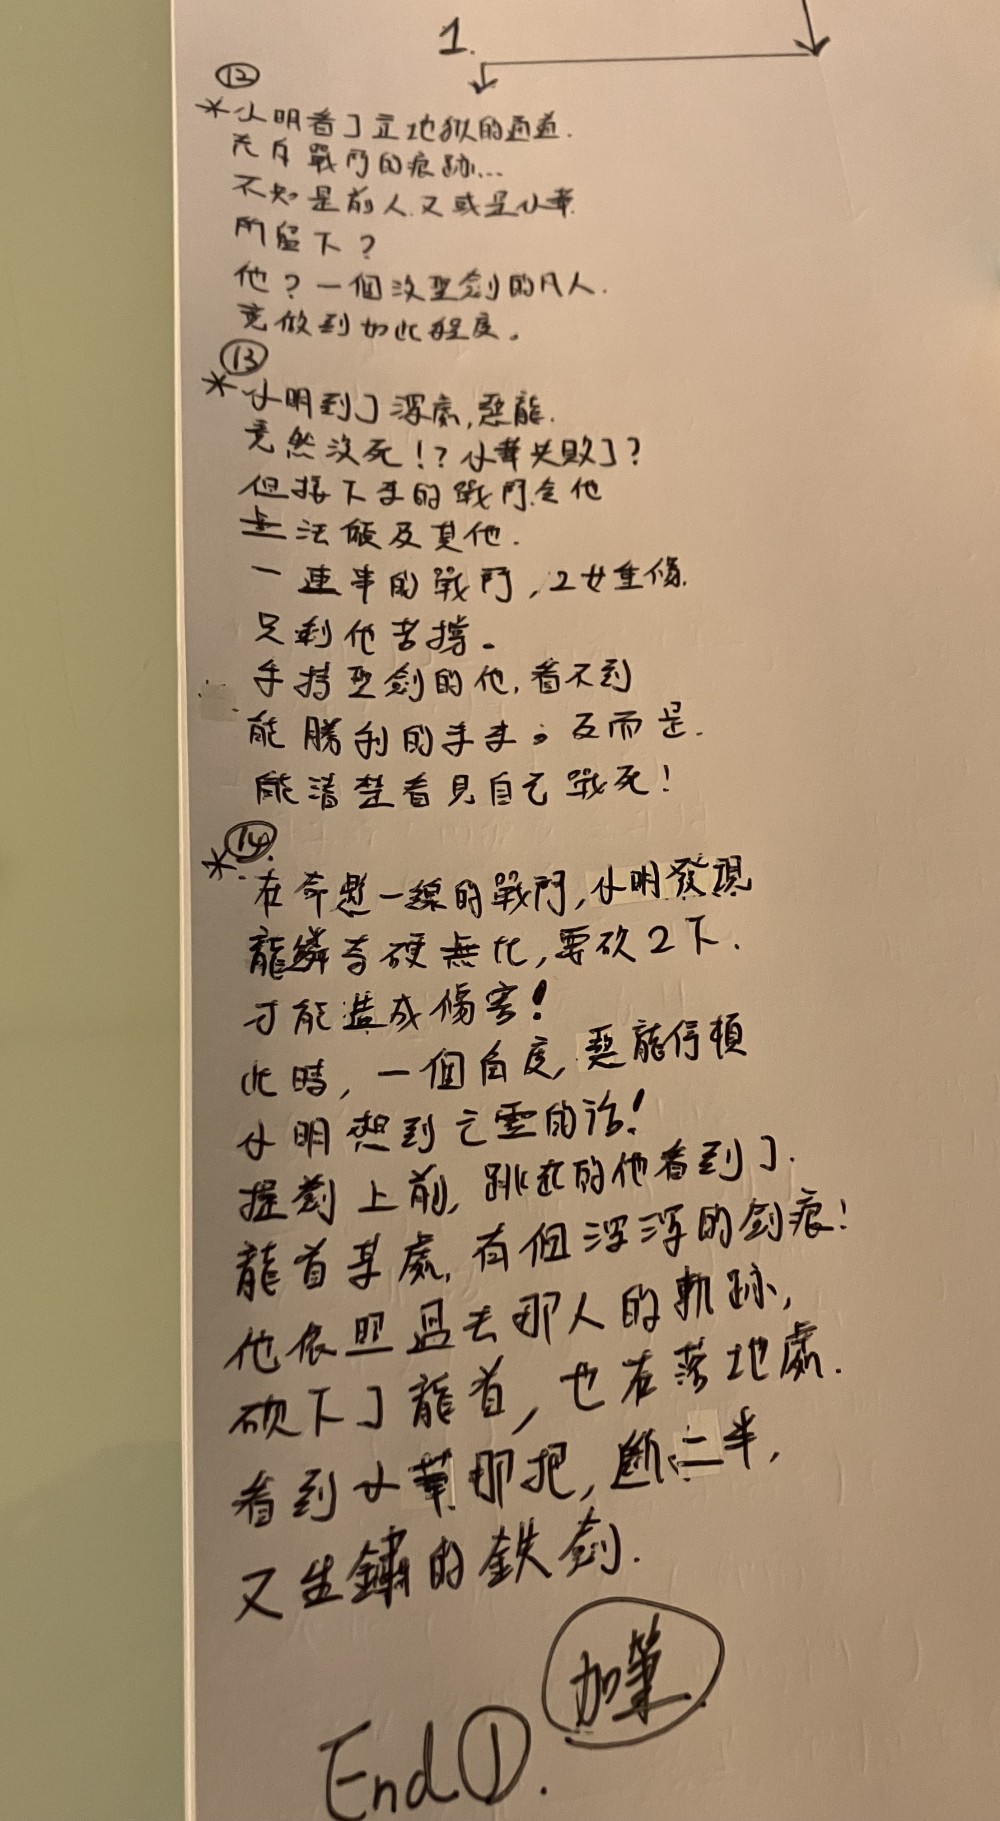 1.
⑫
*小明看了往地獄的通道.
充斥戰鬥的痕跡...
不知是前人又或是小華
所留下?
他?一個沒聖劍的凡人.
竟做到如此程度。
⑬
*小明到了深處,惡龍.
竟然沒死!?小華失敗了?
但接下來的戰鬥令他
無法顧及其他.
一連串的戰鬥,2女重傷.
只剩他苦撐。
手持聖劍的他,看不到
能勝利的未來。反而是.
能清楚看見自己戰死!
⑭
*在命懸一線的戰鬥,小明發現
龍鱗奇硬無比,要砍2下.
才能造成傷害!
此時,一個角度,惡龍停頓
小明想到亡靈的話!
提劍上前,跳起的他看到了.
龍首某處,有個深深的劍痕!
他依照過去那人的軌跡,
砍下了龍首,也在落地處.
看到小華那把,斷二半,
又生鏽的鉄劍.
加筆
End①.